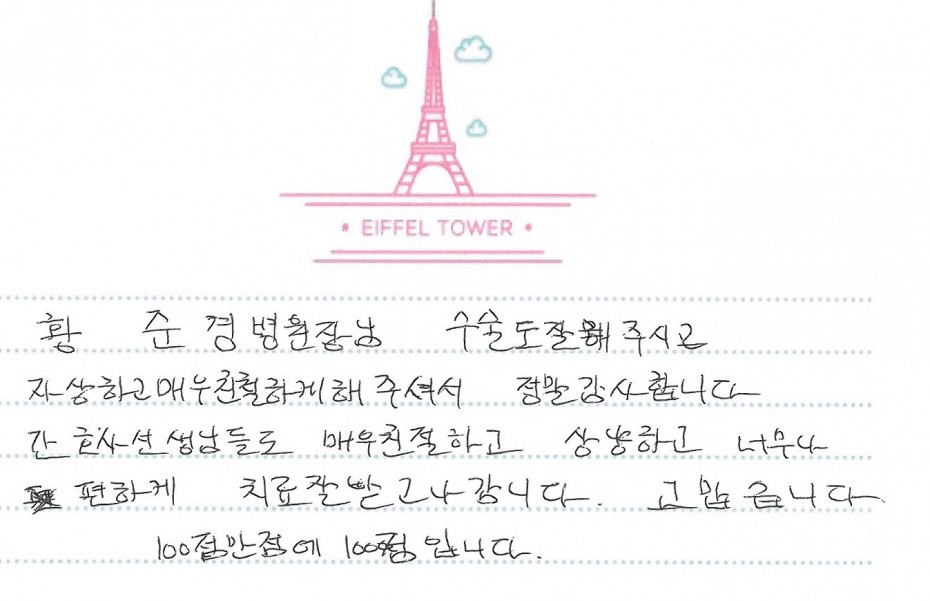 EIFFEL TOWER
황 준 경 병원장님 수술도 잘 해 주시고
자상하고 매우 친절하게 해 주셔서 정말 감사합니다
간호사 선생님들도 매우 친절하고 상냥하고 너무나
편하게 치료 잘 받고 나갑니다. 고맙습니다
100점 만점에 100점 입니다.